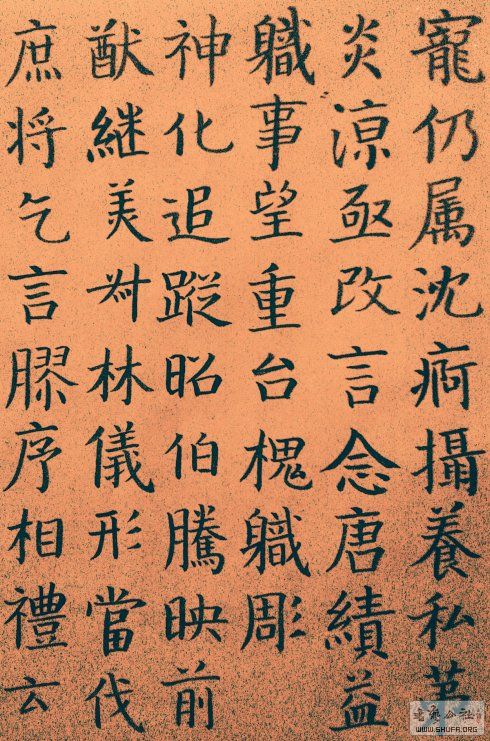 寵仍属沈痾攝養私
炎涼亟改言念唐績益
軄事望重台槐軄彫
神化追蹤昭伯騰映前
猷継美竹林儀形當代
庶将乞言膠序相禮云
WWW.SHUFA.ORG